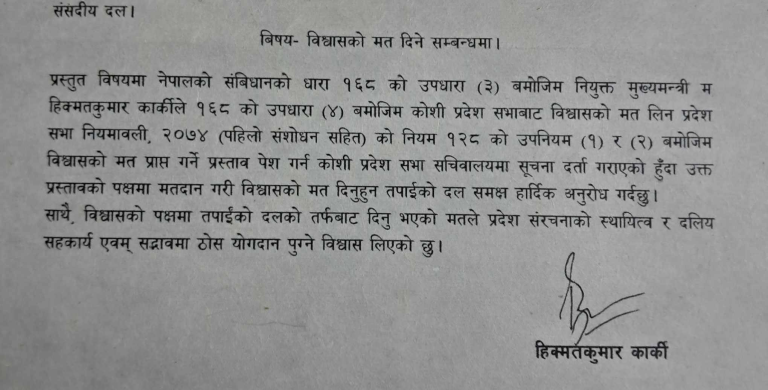 संसदीय दल।
बिषय- विश्वासको मत दिने सम्बन्धमा।
प्रस्तुत विषयमा नेपालको संबिधानको धारा १६८ को उपधारा (३) बमोजिम नियुक्त मुख्यमन्त्री म
हिक्मतकुमार कार्कीले १६८ को उपधारा (४) बमोजिम कोशी प्रदेश सभाबाट विश्वासको मत लिन प्रदेश
सभा नियमावली, २०७४ (पहिलो संशोधन सहित) को नियम १२८ को उपनियम (१) र (२) बमोजिम
विश्वासको मत प्राप्त गर्ने प्रस्ताव पेश गर्न कोशी प्रदेश सभा सचिवालयमा सूचना दर्ता गराएको हुँदा उक्त
प्रस्तावको पक्षमा मतदान गरी विश्वासको मत दिनुहुन तपाईको दल समक्ष हार्दिक अनुरोध गर्दछु।
साथै, विश्वासको पक्षमा तपाईंको दलको तर्फबाट दिनु भएको मतले प्रदेश संरचनाको स्थायित्व र दलिय
सहकार्य एवम् सद्भावमा ठोस योगदान पुग्ने विश्वास लिएको छु।
हिक्मतकुमार कार्की